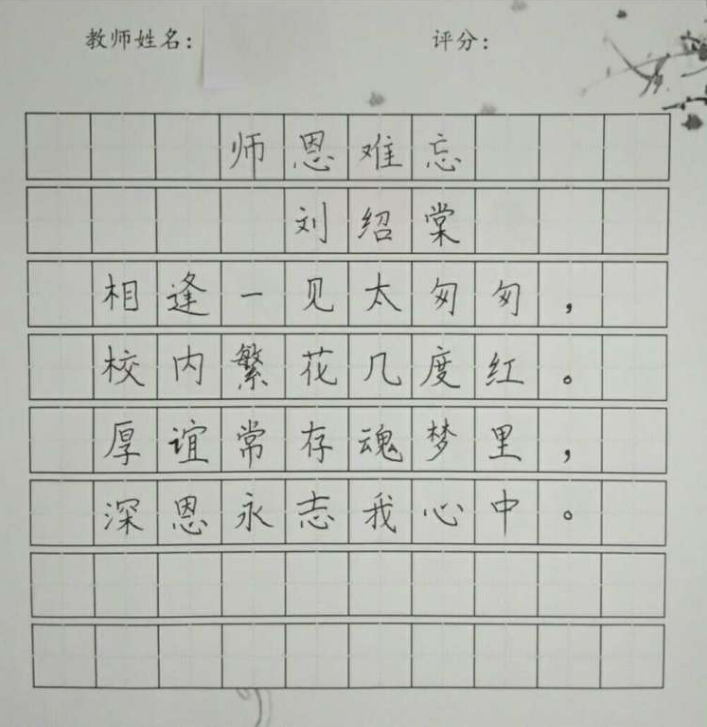 教师姓名： 评分：
师恩难忘
刘绍棠
相逢一见太匆匆，
校内繁花几度红。
厚谊常存魂梦里，
深恩永志我心中。